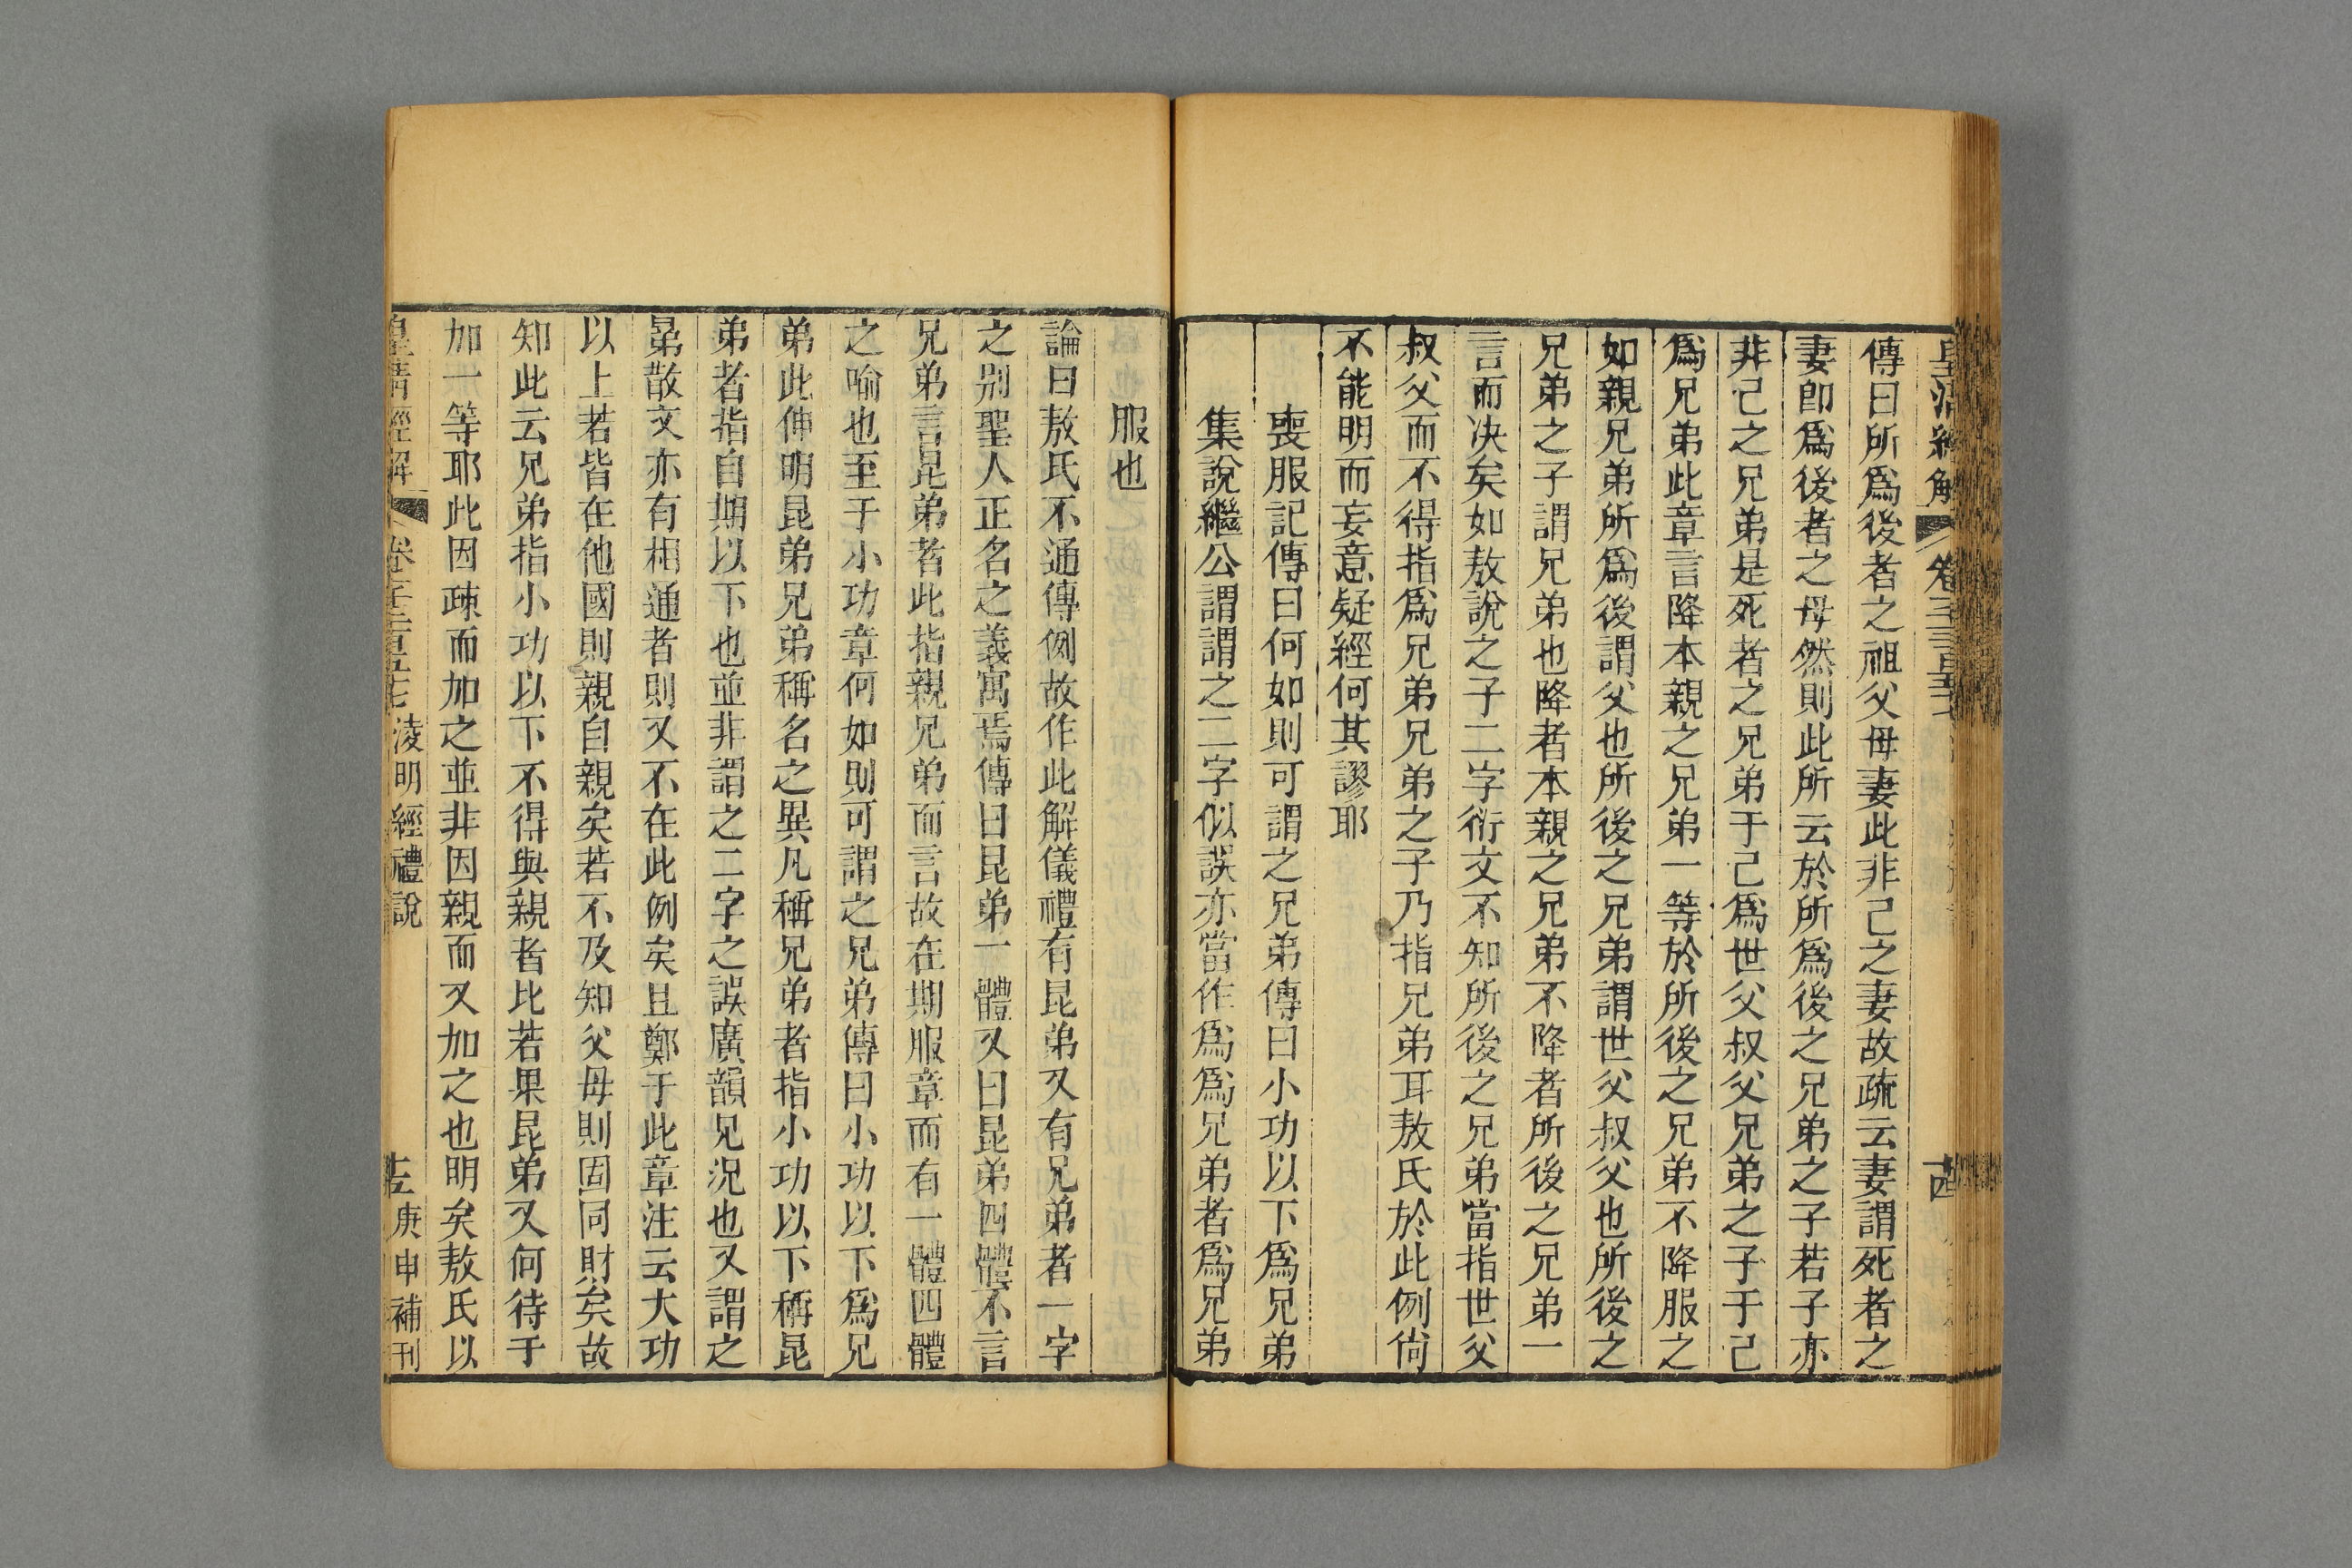 皇清經解 卷
傳曰所爲後者之祖父母妻此非己之妻故疏云妻謂死者之
妻卽爲後者之母然則此所云於所爲後之兄弟之子若子亦
非己之兄弟是死者之兄弟于己爲世父叔父兄弟之子于己
爲兄弟此章言降本親之兄弟一等於所後之兄弟不降服之
如親兄弟所爲後謂父也所後之兄弟謂世父叔父也所後之
兄弟之子謂兄弟也降者本親之兄弟不降者所後之兄弟一
言而决矣如敖說之子二字衍文不知所後之兄弟當指世父
叔父而不得指爲兄弟兄弟之子乃指兄弟耳敖氏於此例尙
不能明而妄意疑經何其謬耶
喪服記傳曰何如則可謂之兄弟傳曰小功以下爲兄弟
集說繼公謂謂之二字似誤亦當作爲爲兄弟者爲兄弟
服也
論曰敖氏不通傳例故作此解儀禮有昆弟又有兄弟者一字
之别聖人正名之義寓焉傳曰昆弟一體又曰昆弟四體不言
兄弟言昆弟者此指親兄弟而言故在期服章而有一體四體
之喻也至于小功章何如則可謂之兄弟傳曰小功以下爲兄
弟此伸明昆弟兄弟稱名之異凡稱兄弟者指小功以下稱昆
弟者指自期以下也並非謂之二字之誤廣韻兄况也又謂之
㬪散文亦有相通者則又不在此例矣且鄭于此章注云大功
以上若皆在他國則親自親矣若不及知父母則固同財矣故
知此云兄弟指小功以下不得與親者比若果昆弟又何待于
加一等耶此因疎而加之並非因親而又加之也明矣敖氏以
皇清經解 卷 淩明經禮說 庚申補刊